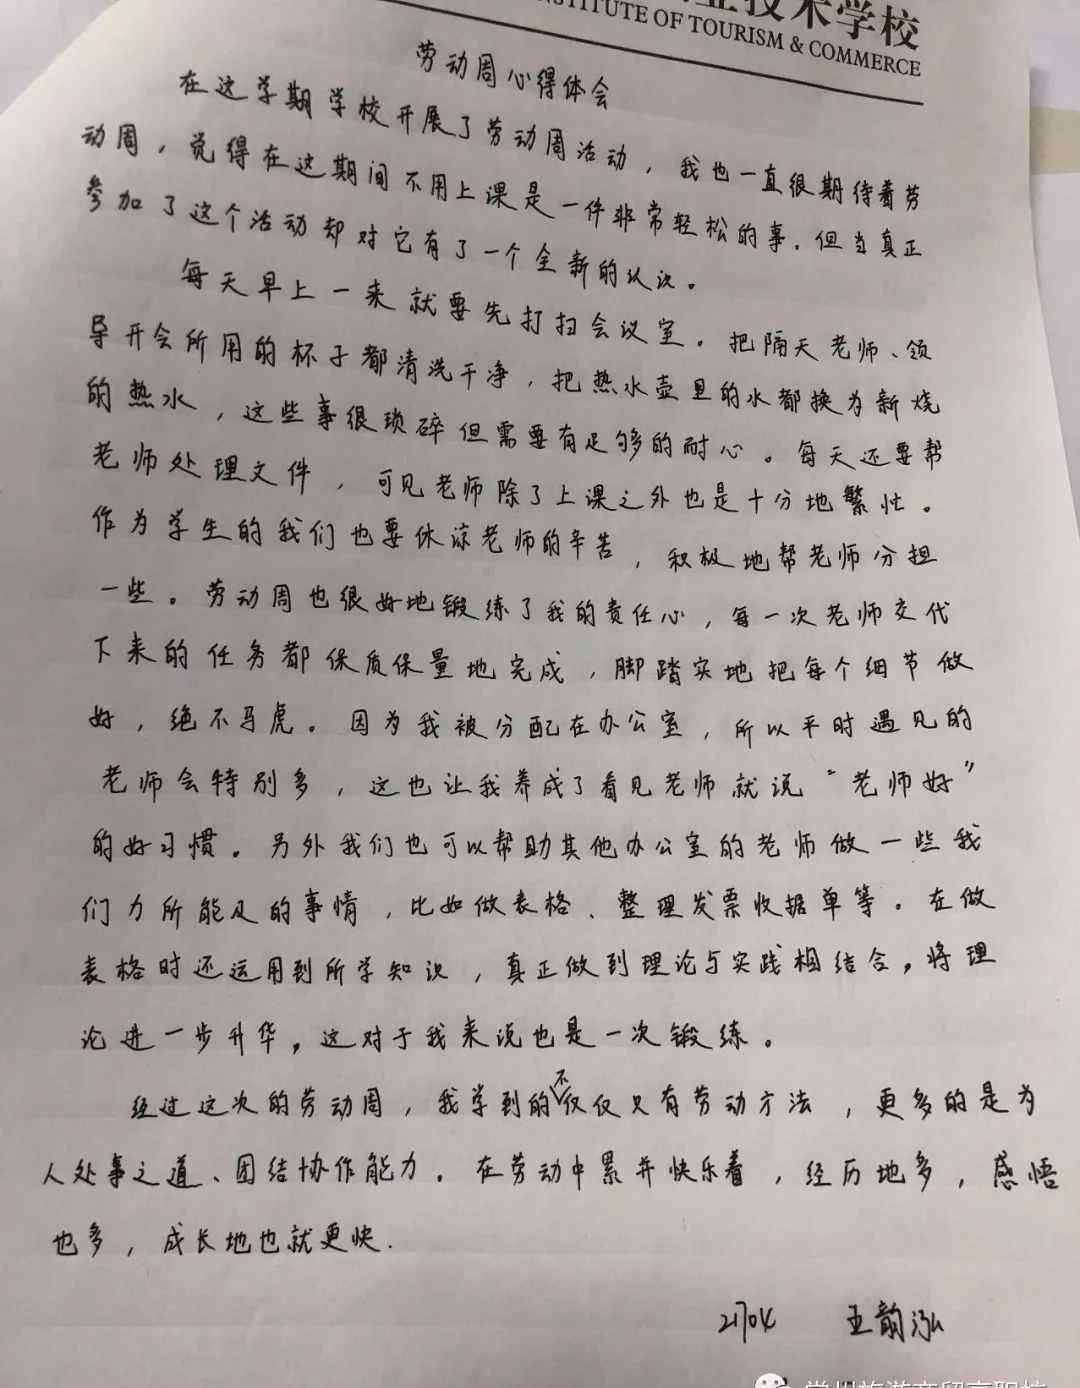 业技术学校
INSTITUTE OF TOURISM & COMMERCE
劳动周心得体会
在这学期学校开展了劳动周活动，我也一直很期待着劳
动周，觉得在这期间不用上课是一件非常轻松的事.但当真正
参加了这个活动却对它有了一个全新的认识。
每天早上一来就要先打扫会议室。把隔天老师、领
导开会所用的杯子都清洗干净，把热水壶里的水都换为新烧
的热水，这些事很琐碎但需要有足够的耐心。每天还要帮
老师处理文件，可见老师除了上课之外也是十分地繁忙。
作为学生的我们也要体谅老师的辛苦，积极地帮老师分担
一些。劳动周也很好地锻练了我的责任心，每一次老师交代
下来的任务都保质保量地完成，脚踏实地把每个细节做
好，绝不马虎。因为我被分配在办公室，所以平时遇见的
老师会特别多，这也让我养成了看见老师就说“老师好”
的好习惯。另外我们也可以帮助其他办公室的老师做一些我
们力所能及的事情，比如做表格、整理发票收据单等。在做
表格时还运用到所学知识，真正做到理论与实践相结合，将理
论进一步升华，这对于我来说也是一次锻练。
经过这次的劳动周，我学到的不仅仅只有劳动方法，更多的是为
人处事之道、团结协作能力。在劳动中累并快乐着，经历地多，感悟
也多，成长地也就更快.
王韵泓
常州旅游商贸高职校